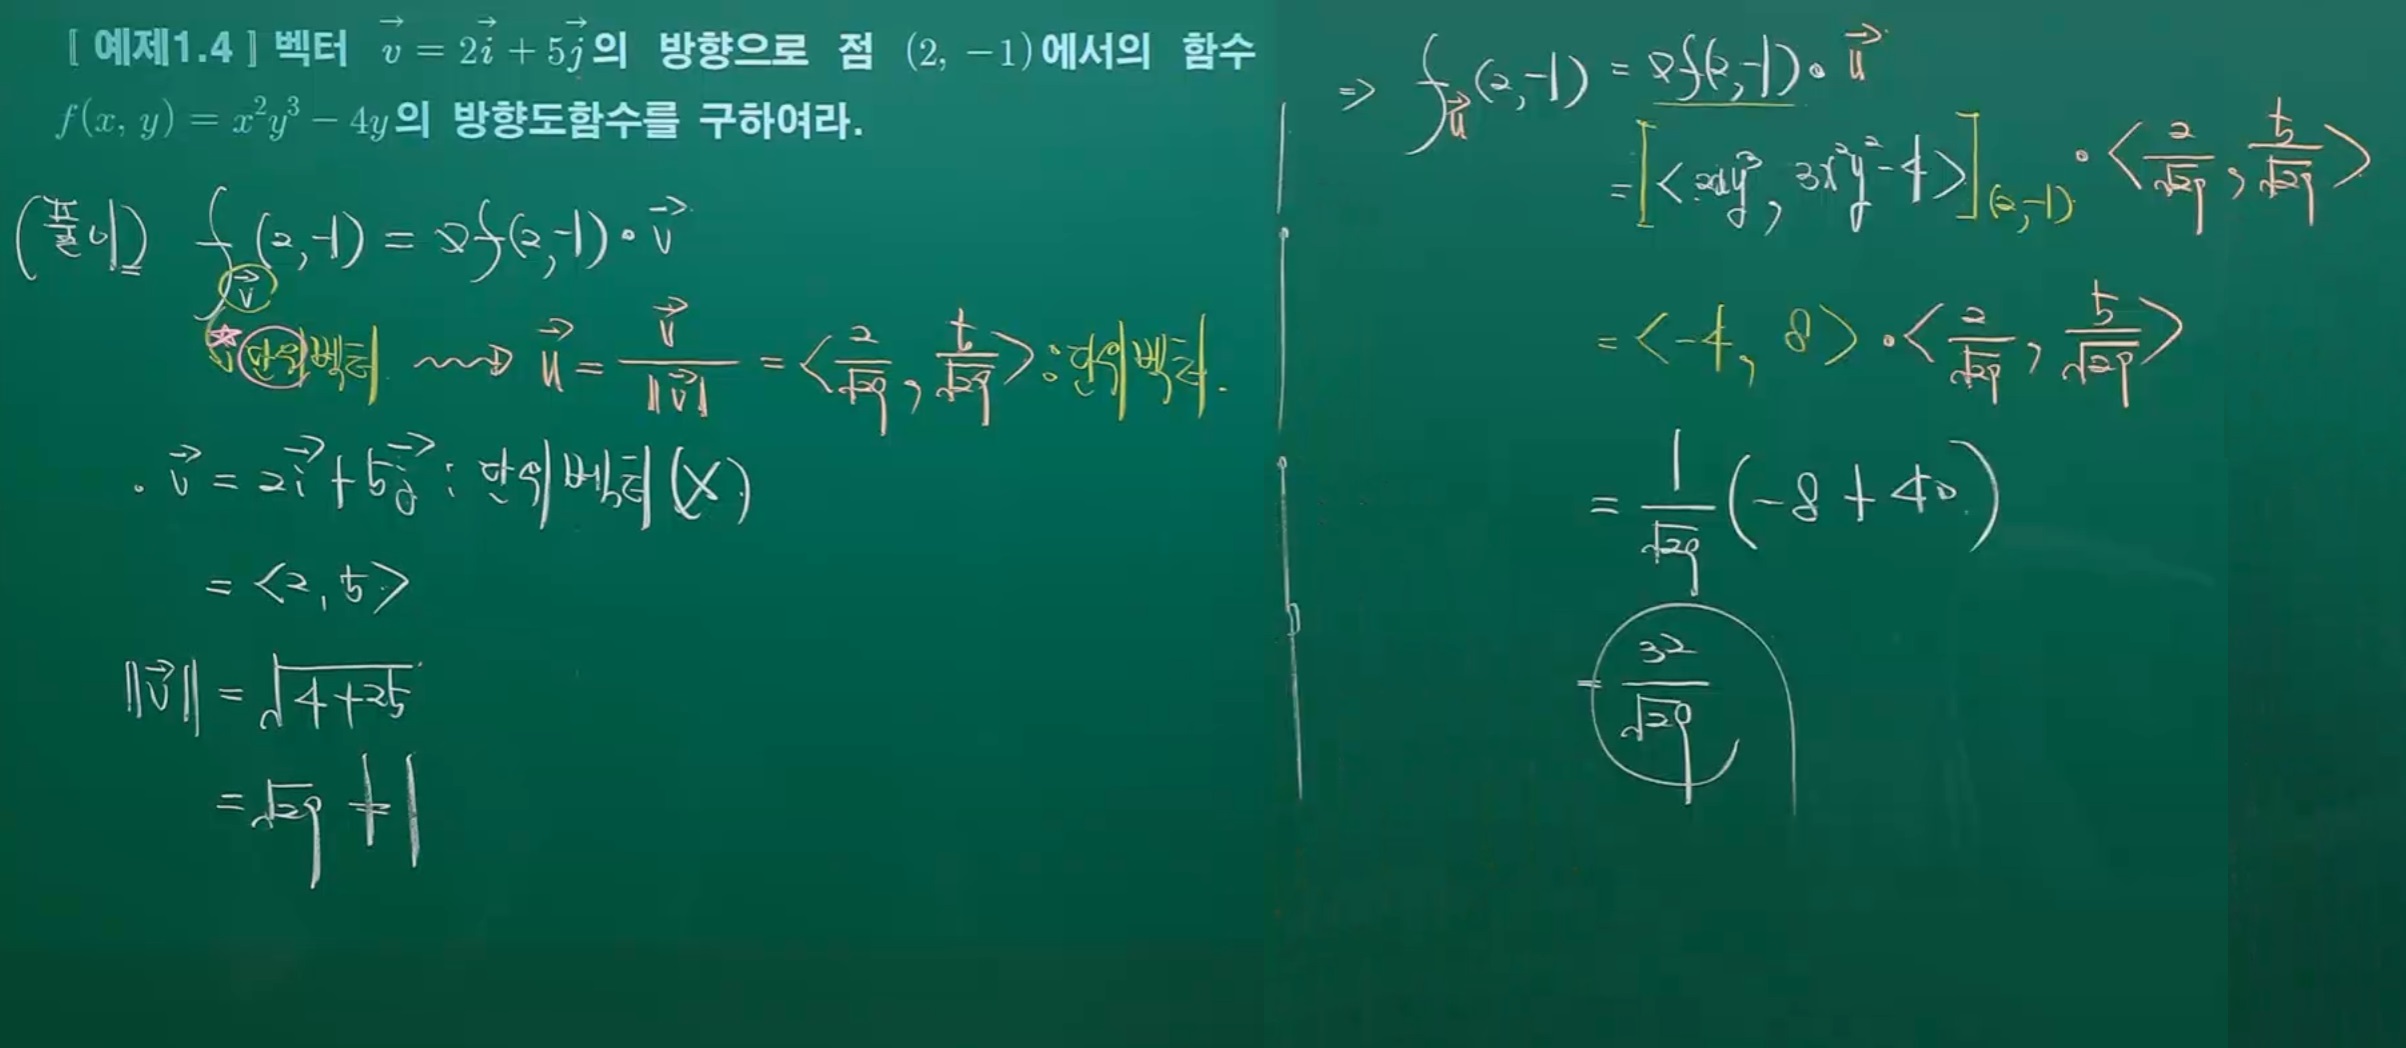 [예제1.4] 벡터 v⃗ = 2i⃗ + 5j⃗의 방향으로 점 (2, −1)에서의 함수
f(x, y) = x²y³ − 4y의 방향도함수를 구하여라.
(풀이) f_v⃗ (2,-1) = ∇f(2,-1)·v⃗
★단위벡터 ⇝ u⃗ = v⃗/‖v⃗‖ = <2/√29, 5/√29> : 단위벡터.
· v⃗ = 2i⃗ + 5j⃗ : 단위벡터 (X)
= <2, 5>
‖v⃗‖ = √(4+25)
= √29 ≠ 1
⇒ f_u⃗ (2,-1) = ∇f(2,-1)·u⃗
= [<2xy³, 3x²y²-4>](2,-1) · <2/√29, 5/√29>
= <-4, 8> · <2/√29, 5/√29>
= 1/√29 (-8 + 40)
= 32/√29